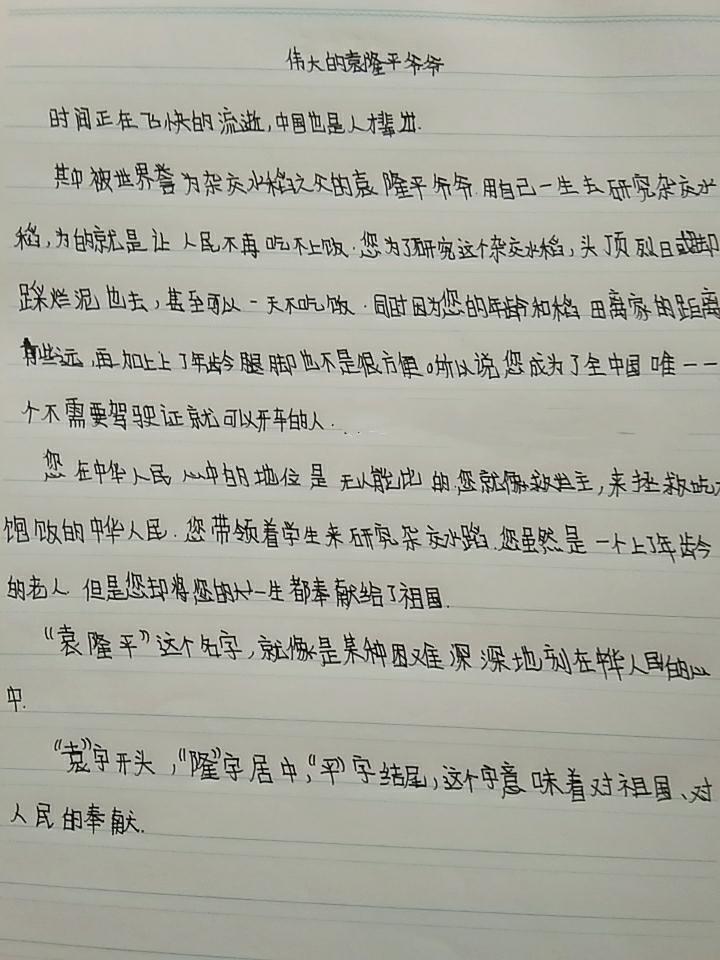 伟大的袁隆平爷爷
时间正在飞快的流逝,中国也是人才辈出.
其中被世界誉为杂交水稻之父的袁隆平爷爷.用自己一生去研究杂交水
稻,为的就是让人民不再吃不上饭.您为了研究这个杂交水稻,头顶烈日或脚
踩烂泥也去,甚至可以一天不吃饭.同时因为您的年龄和稻田离家的距离
有些远,再加上上了年龄腿脚也不是很方便。所以说您成为了全中国唯一一
个不需要驾驶证就可以开车的人.
您在中华人民心中的地位是无人能比的.您就像救世主,来拯救吃不
饱饭的中华人民.您带领着学生来研究杂交水稻.您虽然是一个上了年龄
的老人但是您却将您的大一生都奉献给了祖国.
“袁隆平”这个名字,就像是某种困难深深地刻在中华人民的心
中.
“袁”字开头,“隆”字居中,“平”字结尾,这个字意味着对祖国、对
人民的奉献.